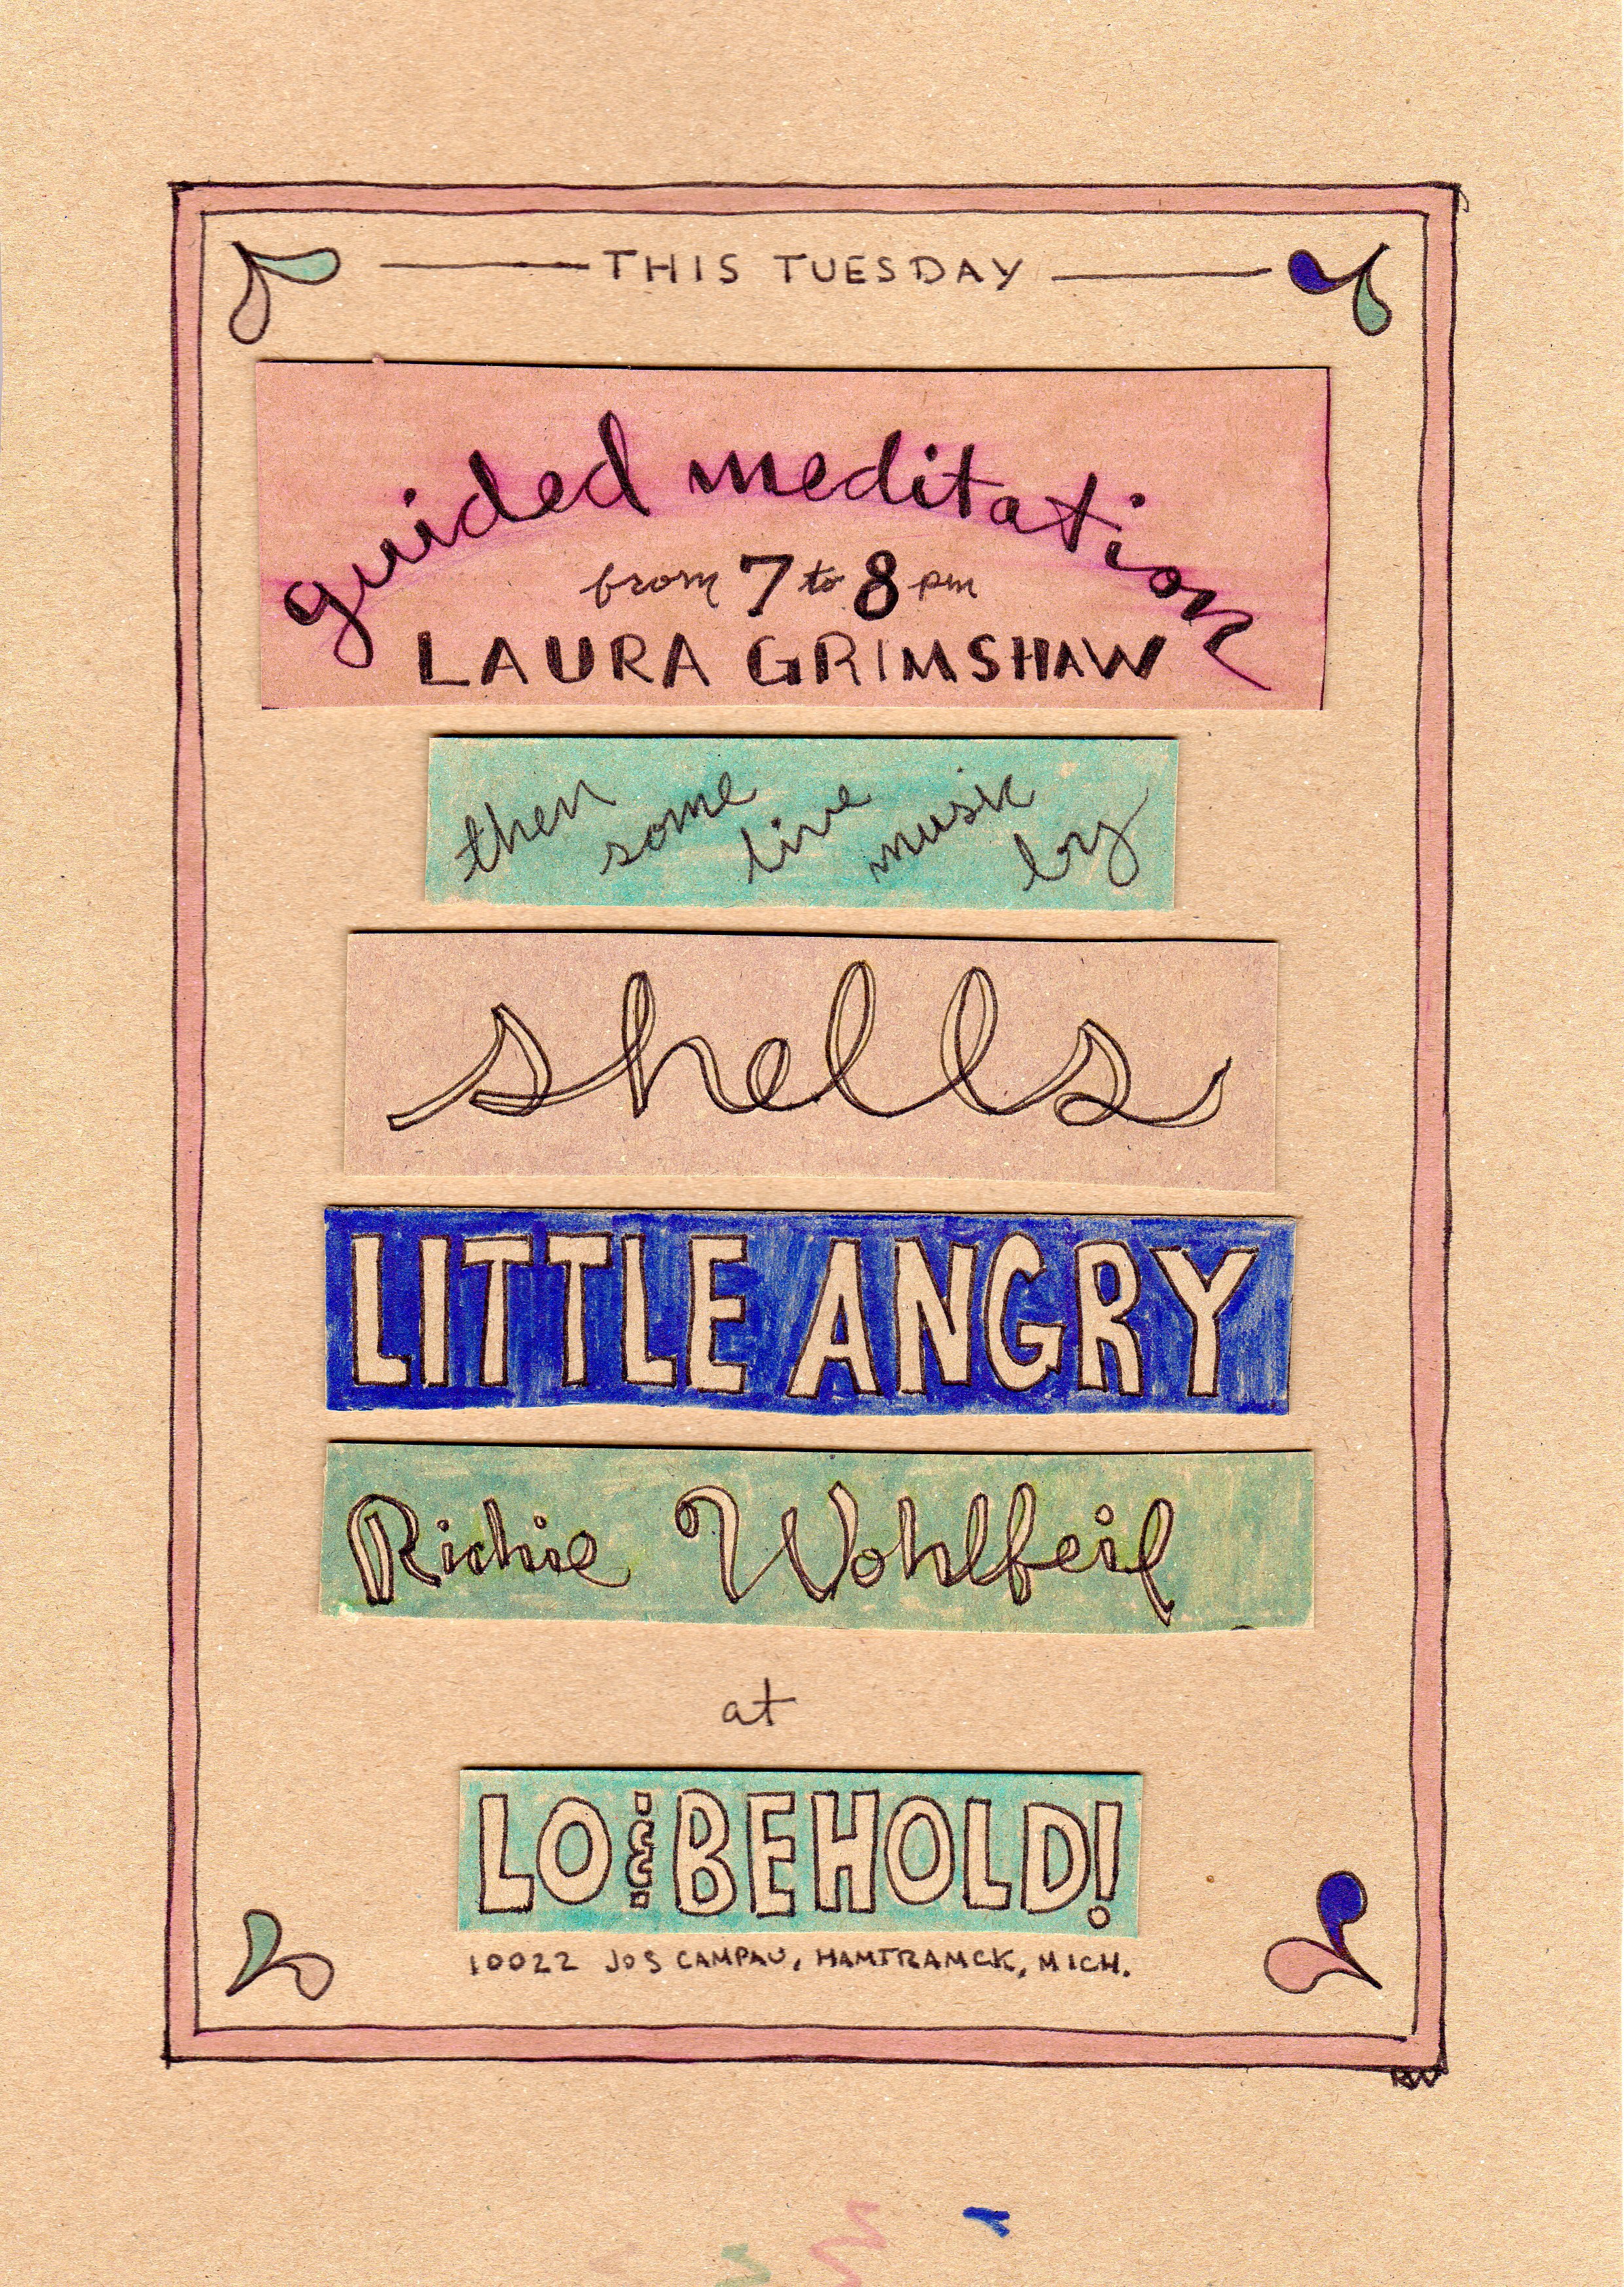 THIS TUESDAY
guided meditation
from 7 to 8 pm
LAURA GRIMSHAW
then some live music by
shells
LITTLE ANGRY
Richie Wohlfeil
at
LO & BEHOLD!
10022 JOS CAMPAU, HAMTRAMCK, MICH.
RW